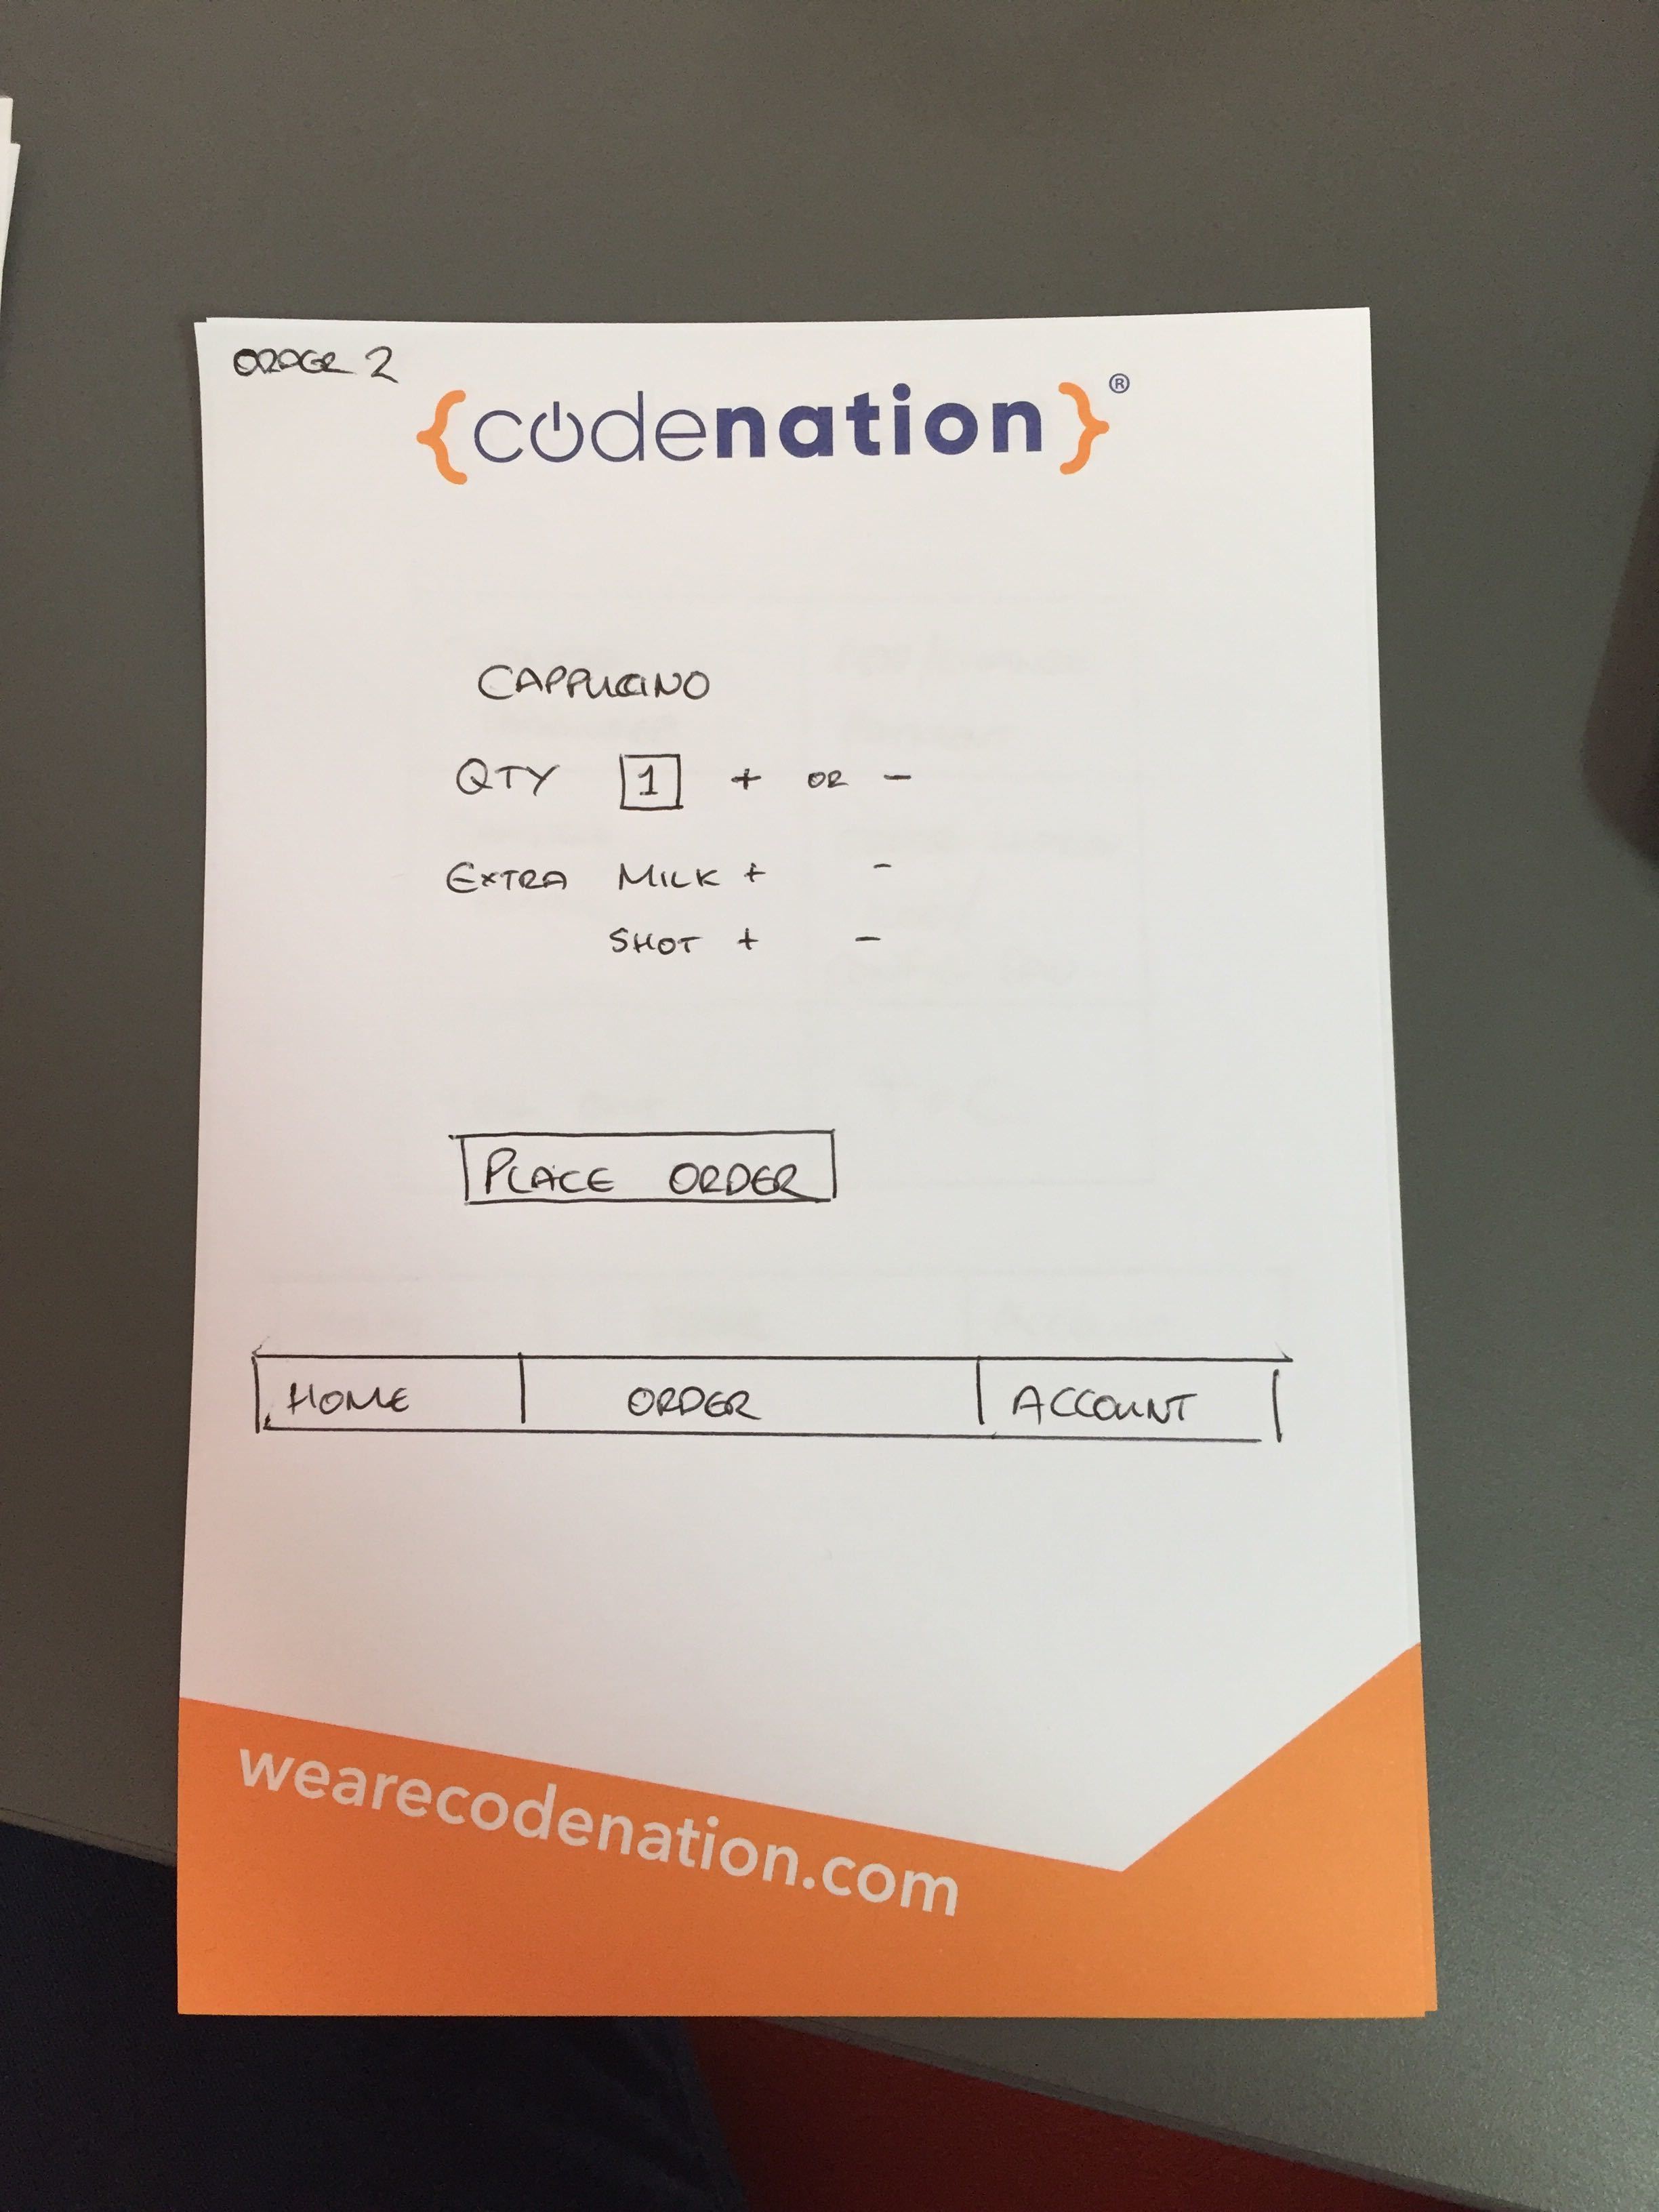 ORDER 2
{codenation}®
CAPPUCCINO
QTY 1 + OR -
EXTRA MILK + -
SHOT + -
PLACE ORDER
HOME ORDER ACCOUNT
wearecodenation.com